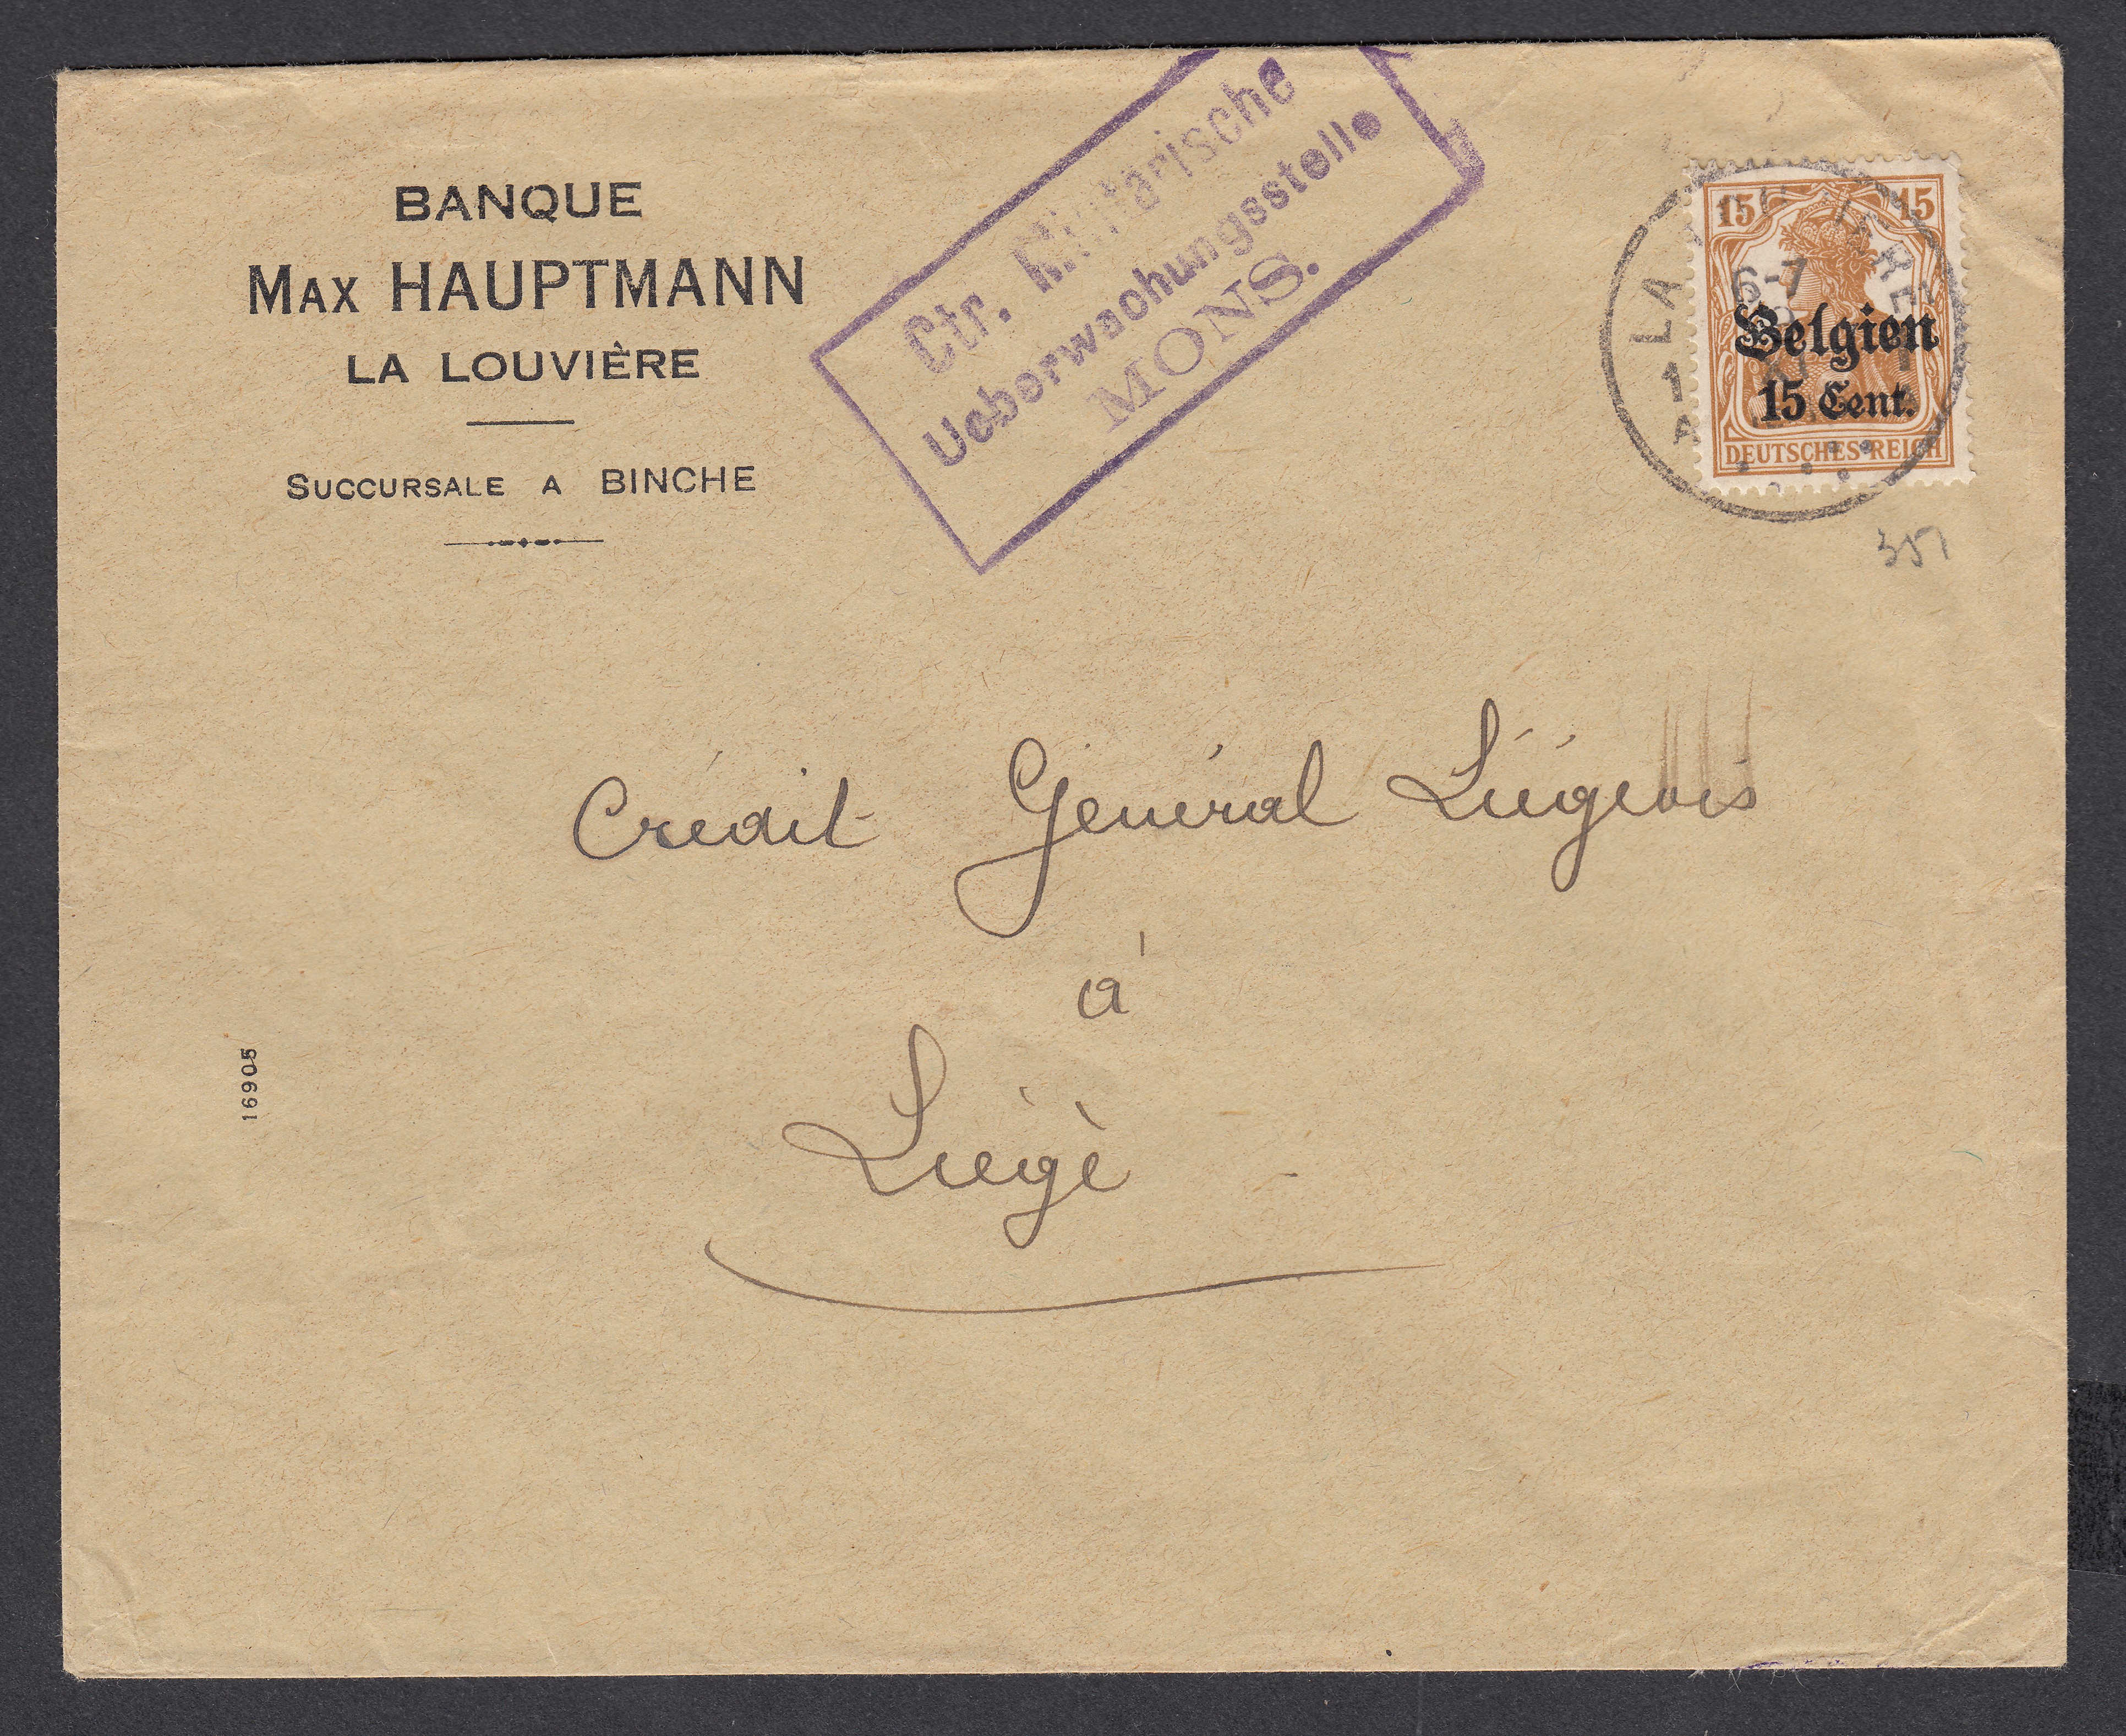 BANQUE
MAX HAUPTMANN
LA LOUVIÈRE
SUCCURSALE A BINCHE
Ctr. Militärische
Ueberwachungsstelle
MONS.
15 15
LA
6-7
Belgien
15 Cent.
DEUTSCHES REICH
1
A
351
Crédit Général Liégeois
à
Liégè
16905